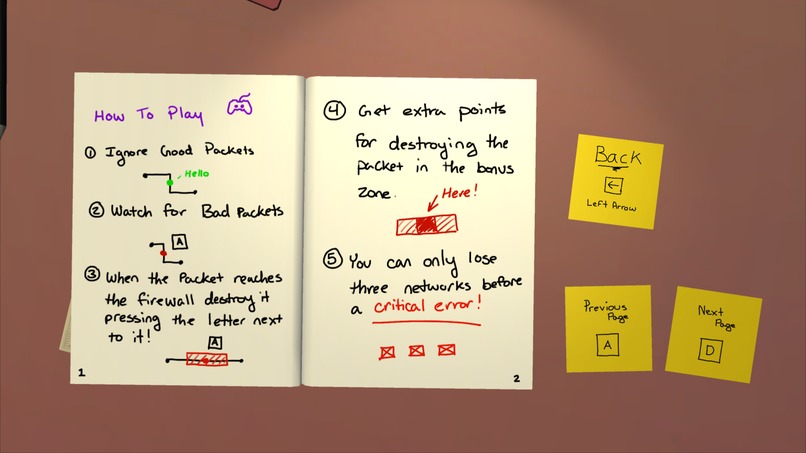 How To Play
① Ignore Good Packets
Hello
② Watch for Bad Packets
A
③ When the Packet reaches
the firewall destroy it
pressing the letter next
to it!
A
1
④ Get extra points
for destroying the
packet in the bonus
zone.
Here!
⑤ You can only lose
three networks before
a critical error!
2
Back
←
Left Arrow
Previous
Page
A
Next
Page
D